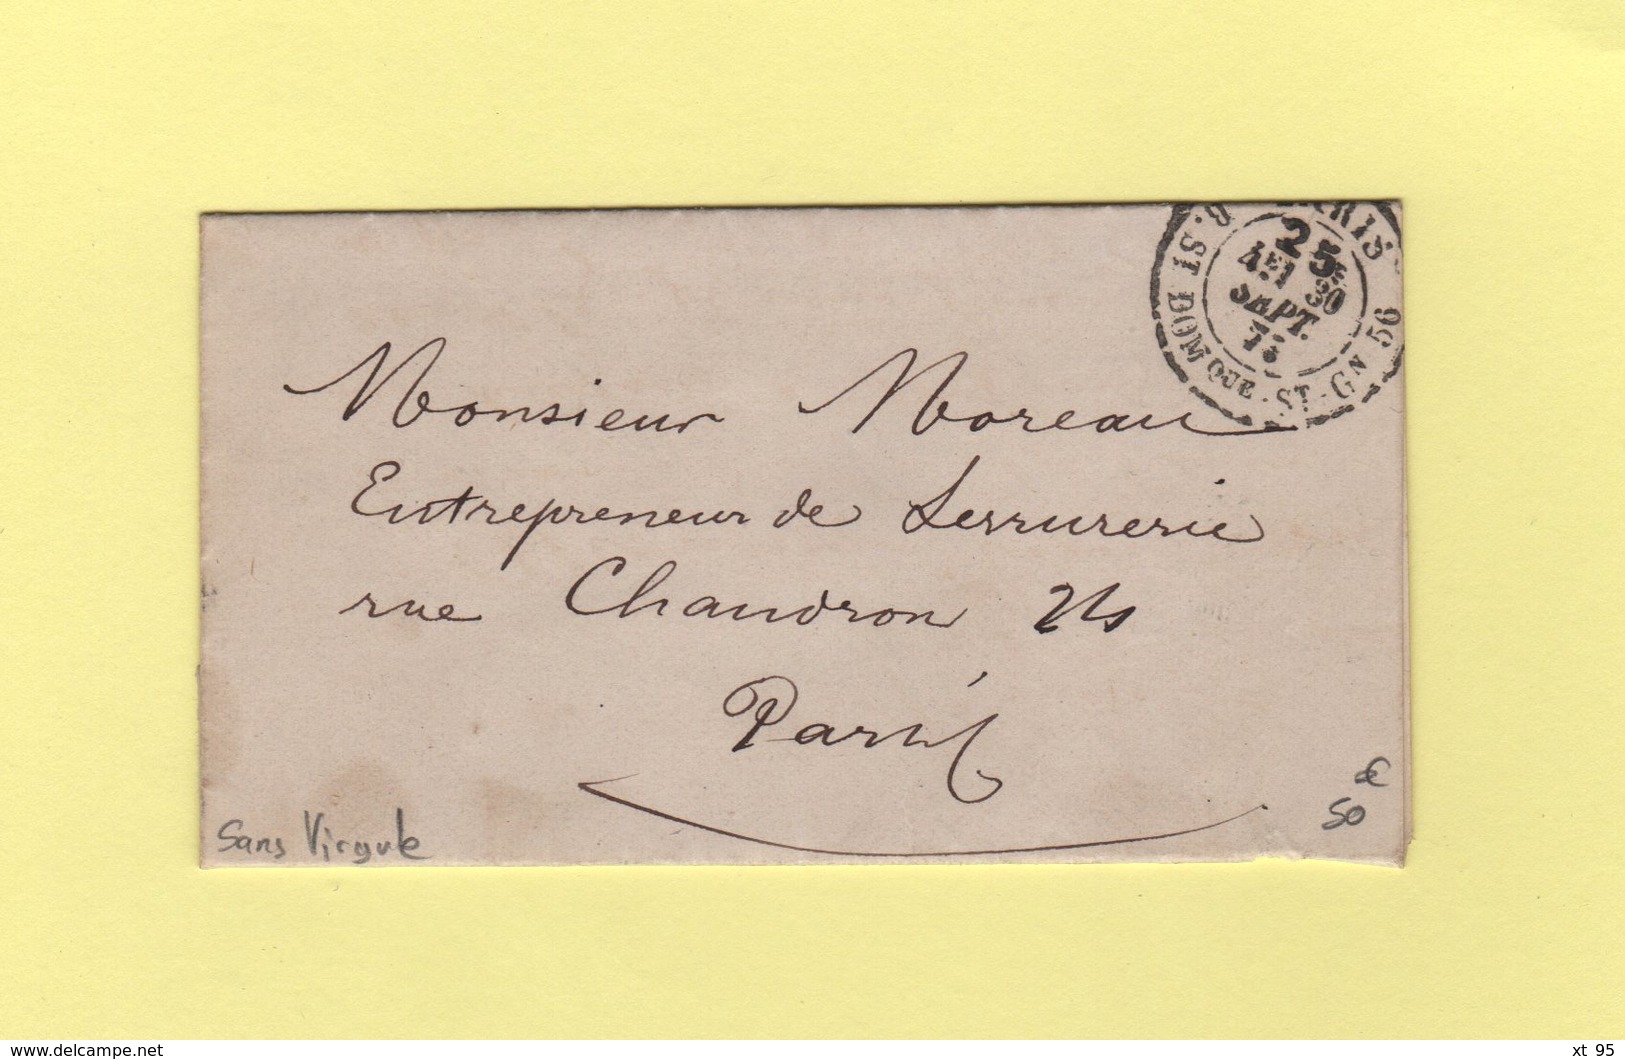 PARIS
R. ST DOMQUE-ST-GN 56
25
4E 30
SEPT.
75
Monsieur Moreau
Entrepreneur de Serrurerie
rue Chaudron
Paris
Sans Virgule
50 €
www.delcampe.net
xt_95